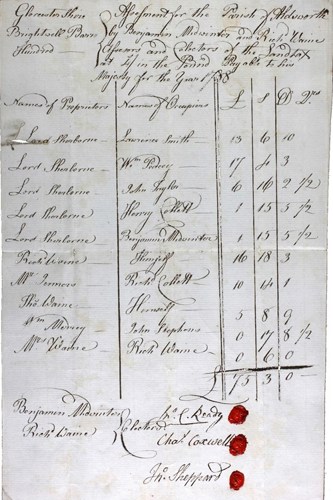 Glocester Shire Assessment for the Parish of Aldsworth
Brightwells Barrow by Benjamin Midwinter and Richd Waine
Hundred Assessors and Collectors of the Landtax
at 4s in the Pound Payable to his
Majesty for the Year 1788
Names of Proprietors Names of Occupiers £ S D Qrs
Lord Sherborne Lawrence Smith 13 6 10
Lord Sherborne Wm 17 4 3
Lord Sherborne John Taylor 6 16 2 1/2
Lord Sherborne Henry Collett 1 15 5 1/2
Lord Sherborne Benjamin Midwinter 1 15 5 1/2
Richd Waine Himself 16 18 3
Mr Richd Collett 10 14 1
Thos Waine Himself 5 8 9
Wm John Stephens 0 17 8 1/2
Mrs Waine Richd Waine 0 6 0
£ 75 3 0
Benjamin Midwinter
Richd Waine Collectors
C. Ready
Chas Coxwell
Jno Sheppard